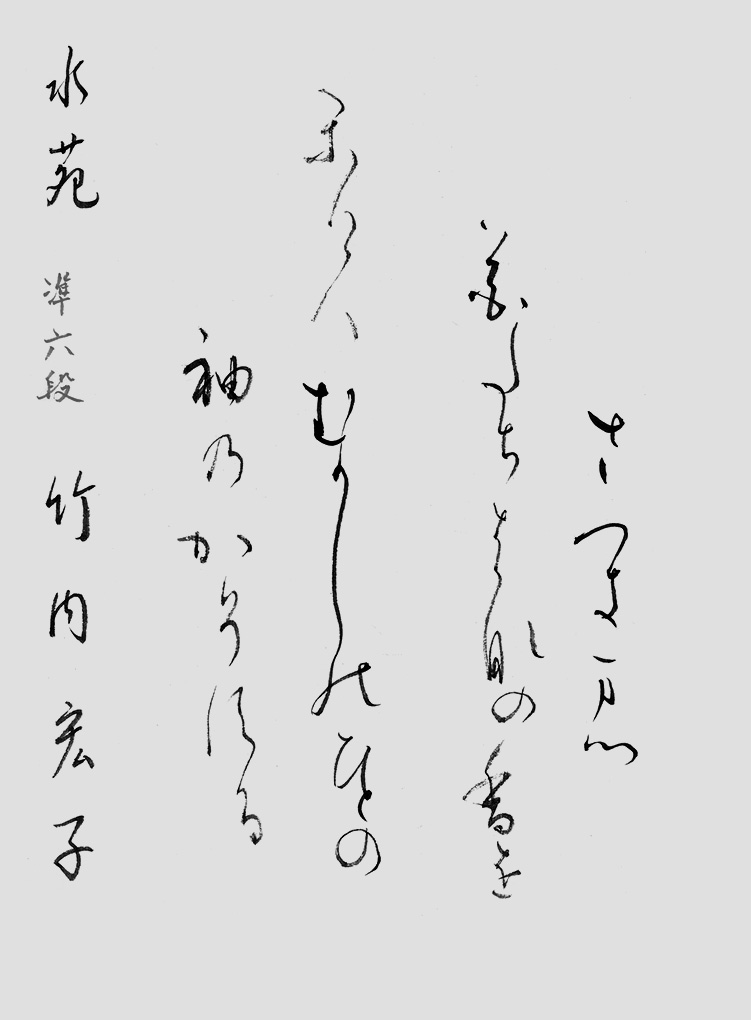 さつきまつ
花たちはなの香を
かけはむかしのひとの
袖乃かそする
水苑 準六段 竹内宏子